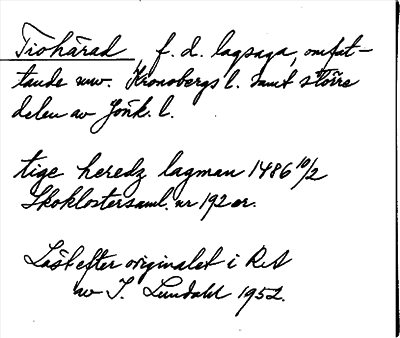 Tiohärad, f. d. lagsaga, omfat-
tande nuv. Kronobergs l. samt större
delen av Jönk. l.
tige heredz lagman 1486 10/2
Skoklostersaml. nr 192 er.
Läst efter originalet i RA
av I. Lundahl 1952.